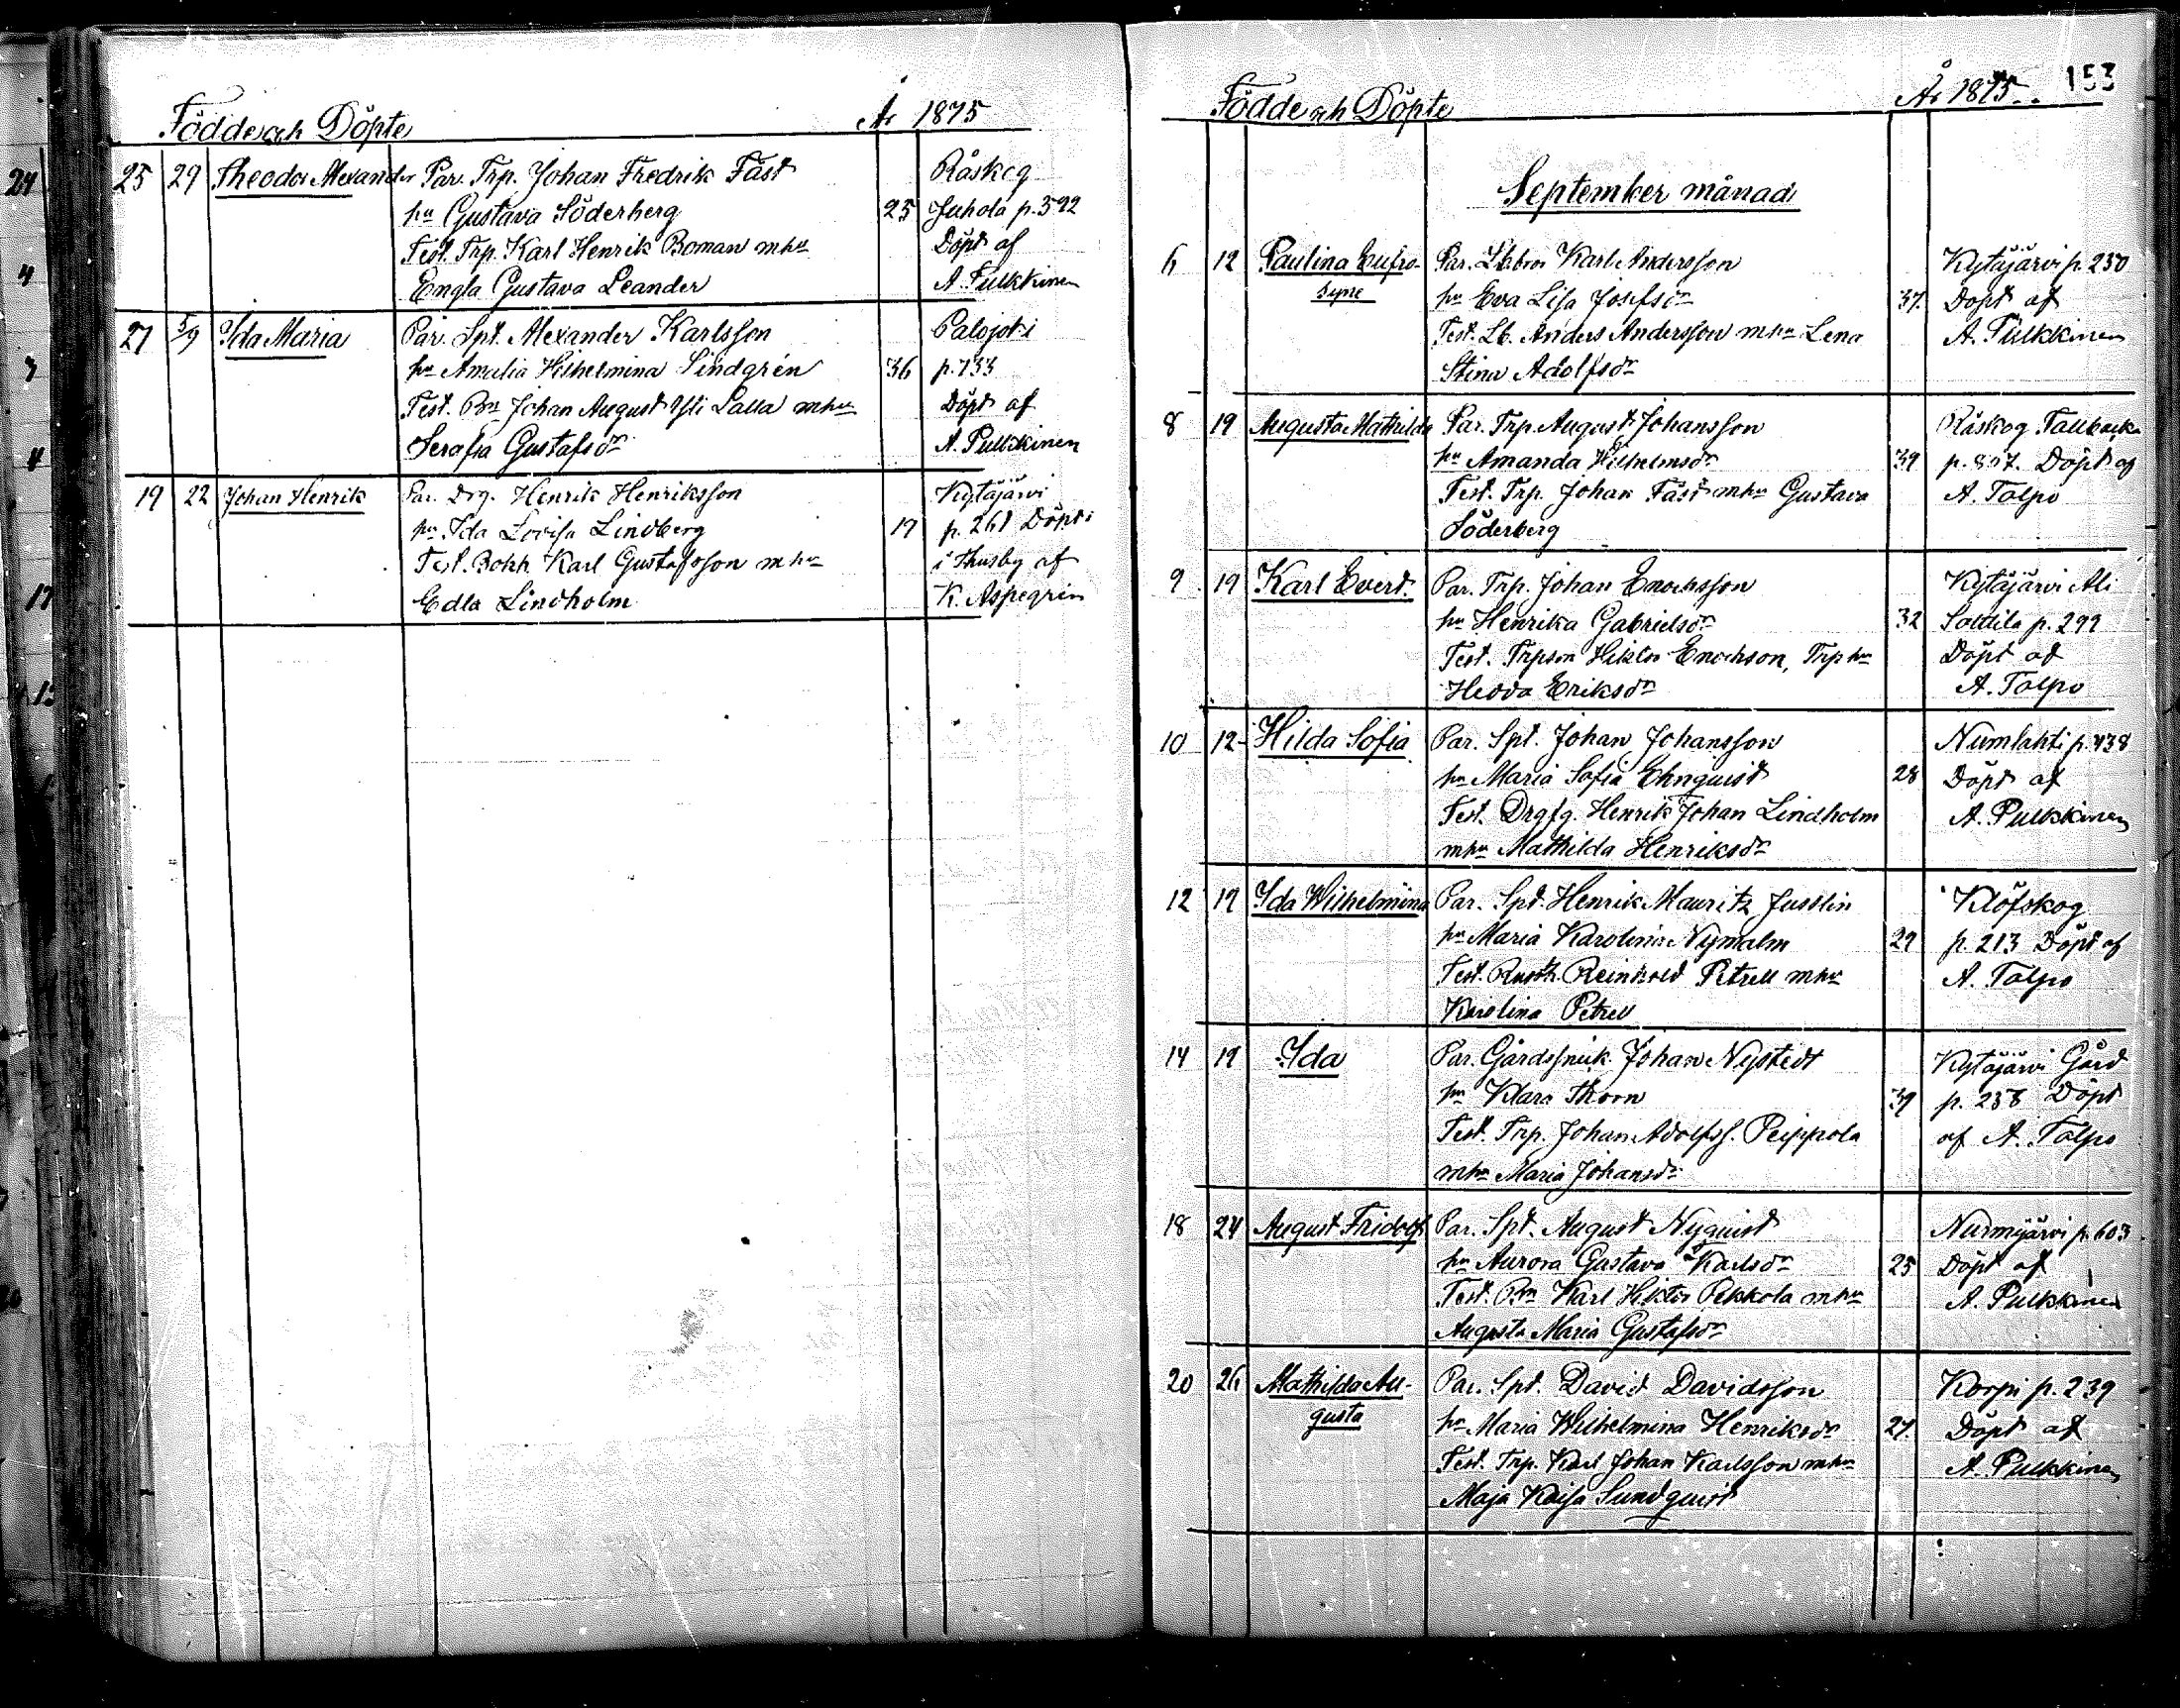 Födde och Döpte År 1875
25 29 Theodor Alexander Par. Trp. Johan Fredrik Fäst Råskog
hu Gustava Söderberg 25 Juhola p. 592
Test. Trp. Karl Henrik Boman mhu Döpt af
Engla Gustava Leander A. Pulkkinen
27 5/9 Ida Maria Par. Spt. Alexander Karlsson Palojoki
hu Amalia Wilhelmina Lindgrén 36 p. 733
Test. Bn Johan August Yli Lalla mhu Döpt af
Serafia Gustafsdr A. Pulkkinen
19 22 Johan Henrik Par. Drg. Henrik Henriksson Kytäjärvi
hu Ida Lovisa Lindberg 19 p. 261 Döpt
Test. Bokh Karl Gustafsson mhu i Thusby af
Edla Lindholm K. Aspegrén
24
4
3
4
17
Födde och Döpte År 1875. 153
September månad
6 12 Paulina Eufro- Par. Karl Andersson Kytäjärvi p. 250
syne hu Eva Lisa Josefsdr 37. Döpt af
Test. Lb. Anders Andersson mhu Lena A. Pulkkinen
Stina Adolfsdr
8 19 Augusta Mathilda Par. Trp August Johansson Råskog Tallbacka
hu Amanda Wilhelmsdr 39 p. 807. Döpt af
Test. Trp. Johan Fäst mhu Gustava A. Talpo
Söderberg
9 19 Karl Evert. Par. Trp. Johan Enochsson Kytäjärvi Ali
hu Henrika Gabrielsdr 32 Solttila p. 299
Test. Trpson Viktor Enochson, Trp hu Döpt af
Hedda Eriksdr A. Talpo
10 12 Hilda Sofia Par. Spt. Johan Johansson Numlahti p. 438
hu Maria Sofia Ehnquist 28 Döpt af
Test. Drgfg. Henrik Johan Lindholm A. Pulkkinen
mhu Mathilda Henriksdr
12 19 Ida Wilhelmina Par. Spt. Henrik Mauritz Jusslin Klöfskog
hu Maria Karolina Nymalm 29 p. 213 Döpt af
Test. Reinhold Petrell mhu A. Talpo
Karolina Petrell
14 19 Ida Par. Gårdssnick. Johan Nystedt Kytäjärvi Gård
hu Klara Thorn 39 p. 238 Döpt
Test. Trp. Johan Adolfss. Peippola af A. Talpo
mhu Maria Johansdr
18 24 August Fridolf Par. Spt. August Nyquist Nurmijärvi p. 603
hu Aurora Gustava Karlsdr 25 Döpt af
Test. Bn Karl Viktor Pekkola mhu A. Pulkkinen
Augusta Maria Gustafsdr
20 26 Mathilda Au- Par. Spt. David Davidsson Korpi p. 239
gusta hu Maria Wilhelmina Henriksdr 27. Döpt af
Test. Trp. Karl Johan Karlsson mhu A. Pulkkinen
Maja Kajsa Sundquist